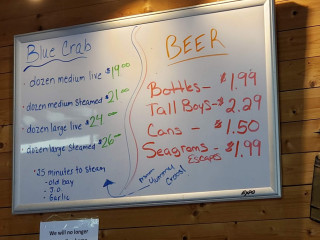 Blue Crab
• dozen medium live $19.00
• dozen medium steamed $21.00
• dozen large live $24—
• dozen large steamed $26—
• 25 minutes to steam
- old bay
- J.O.
- Garlic
BEER
Bottles - $1.99
Tall Boys - $2.29
Cans - $1.50
Seagrams - $1.99
Escapes
mmm
yummy
Crabs!
EXPO
We will no longer